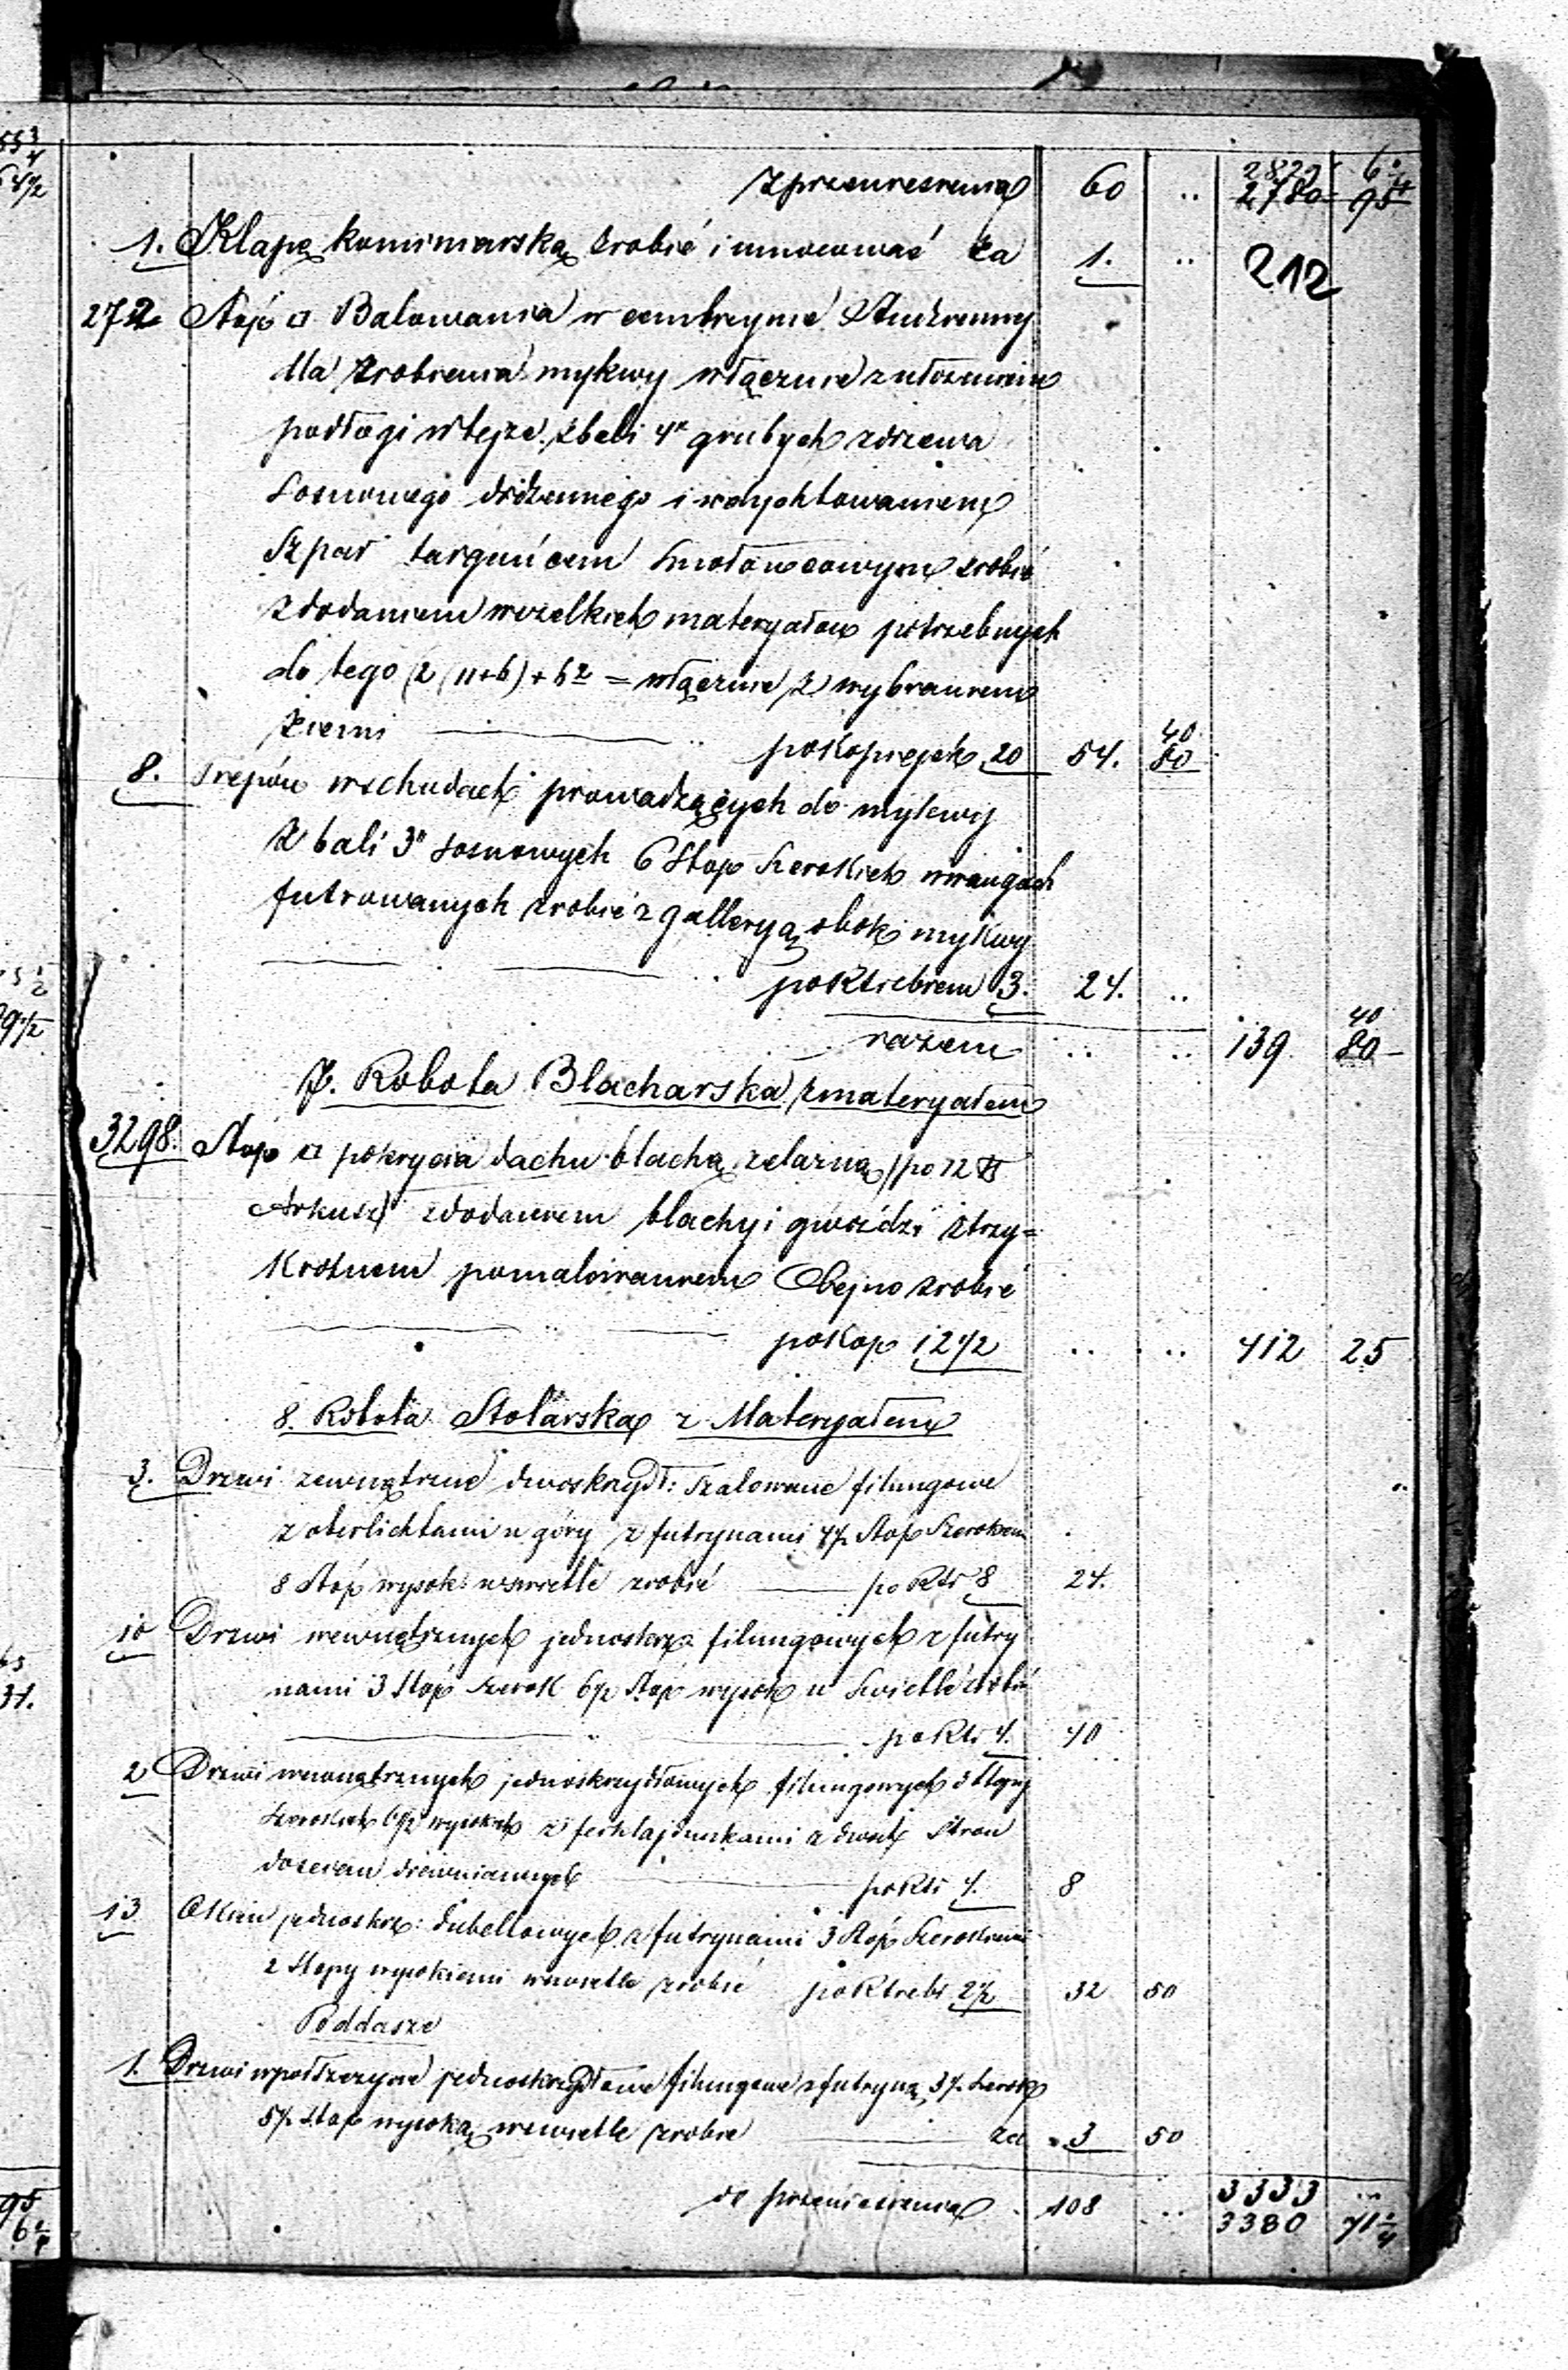 z przeniesienia 60 .. 2873 6
2780 95
1. Klapę kominiarską zrobić i umocować za 1. ..
212
272 Stóp □ Balowania w cembrzynie Studzienny
dla zrobienia mykwy włącznie z ułożeniem
podłogi w tejże z bali 4" grubych z drzewa
Sosnowego i wdychtowaniem
Szpar smołowcowym zrobić
z dodaniem wszelkich materyałow potrzebnych
do tego (2 (11+6) + 62 = włącznie z wybraniem
ziemi 40
po kopiejek 20 54. 80
8. Stepów w schodach prowadzących do mykwy
z bali 3" sosnowych 6 Stop Szerokich w wangach
futrowanych zrobić z galleryą obok mykwy
po Rtrebrem 3. 24. ..
40
razem .. .. 139 80
7. Robota Blacharska z materyałem
3298. Stóp □ pokrycia dachu blachą żelazną (po 12 ℔
Arkusz) z dodaniem blachy i gwoździ z trzy=
krotnem pomalowaniem Olejno zrobić
po kop 12 1/2 .. .. 412 25
8. Robota Stolarska z Materyałem
3. Drzwi zewnętrzne dwoskrzydł: szalowane filungowe
z oberlichtami u góry z futrynami 4 1/2 Stóp Szerokiem
8 Stóp wysok: w świetle zrobić po Rtr 8 24.
10 Drzwi wewnętrznych jednoskrz: filungowych z futry
nami 3 Stóp szerok 6 1/2 Stóp wysok w Świetle zrobić
po Rtr 4. 40
2 Drzwi wewnętrznych jednoskrzydłowych filungowych 3 Stopy
Szerokich 6 1/2 wysokich z z dwóch Stron
do ścian drewnianych po Rtr 4. 8
13 Okien jednoskrz: dubeltowych z futrynami 3 Stóp Szerokiemi
2 Stopy wysokiemi w świetle zrobić po Rtrebr 2 1/2 32 50
Poddasze
1. Drzwi w jednoskrzydłowe filungowe z futryną 3 1/2 szerok
5 1/2 Stop wysoką w świetle zrobić za 3 50
do przeniesienia 108 .. 3333 ..
3380 71 1/4